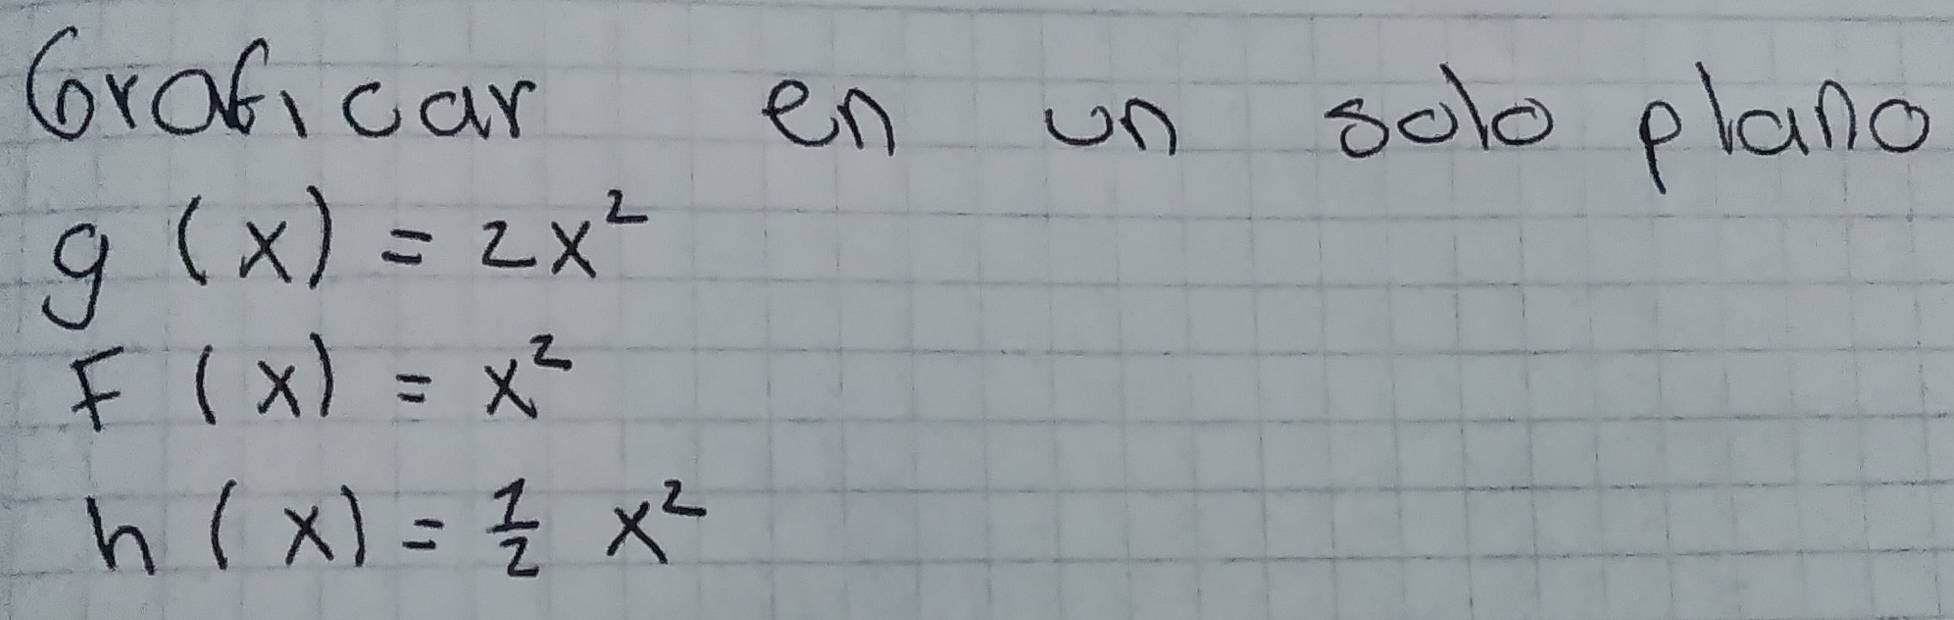 Graficar en un solo plano
g (x) = 2x²
F (x) = x²
h (x) = 1/2 x²